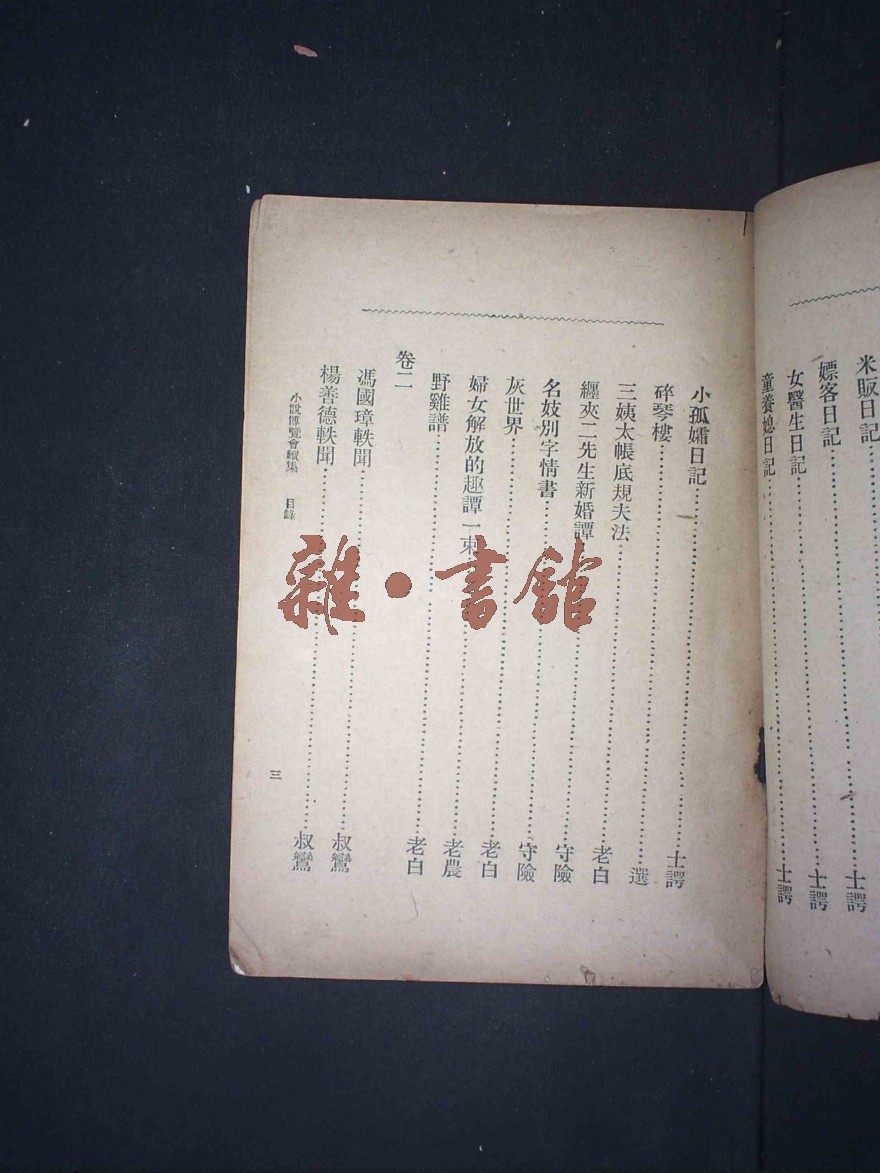 米販日記……士諤
嫖客日記……士諤
女醫生日記……士諤
童養媳日記……
小孤孀日記……士諤
碎琴樓……選
三姨太帳底規夫法……老白
纏夾二先生新婚譚……守險
名妓別字情書……守險
灰世界……老白
婦女解放的趣譚一束……老農
野雞譜……老白
卷二
馮國璋軼聞……叔鸞
楊善德軼聞……叔鸞
小說博覽會續集 目錄
三
雜·書館